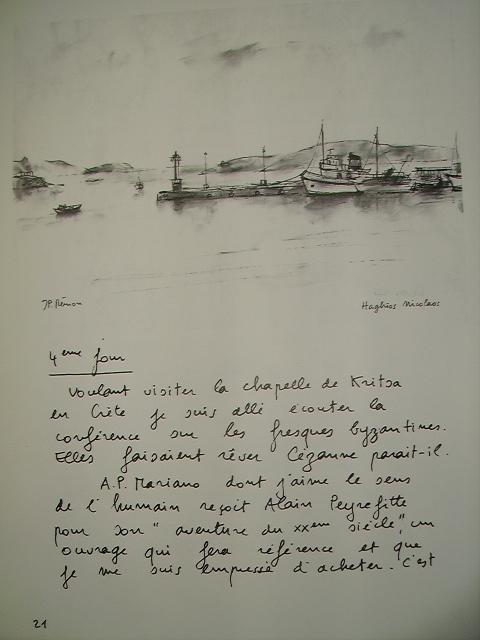 JP. Rémon
Haghios Nicolaos
4eme jour
Voulant visiter la chapelle de Kritsa
en Crète je suis allé écouter la
conférence sur les fresques byzantines.
Elles faisaient rêver Cézanne parait-il.
A.P. Mariano dont j'aime le sens
de l'humain reçoit Alain Peyrefitte
pour son "aventure du XXeme siècle", un
ouvrage qui fera référence et que
je me suis empressé d'acheter. C'est
21